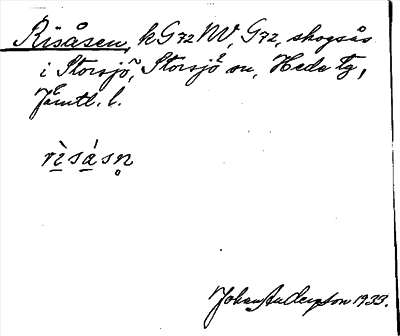 Risåsen, k G72NV, G72, skogsås
i Storsjö, Storsjö sn, Hede tg,
Jämtl. l.
rìsásn̥
Johan Anderzson 1933.